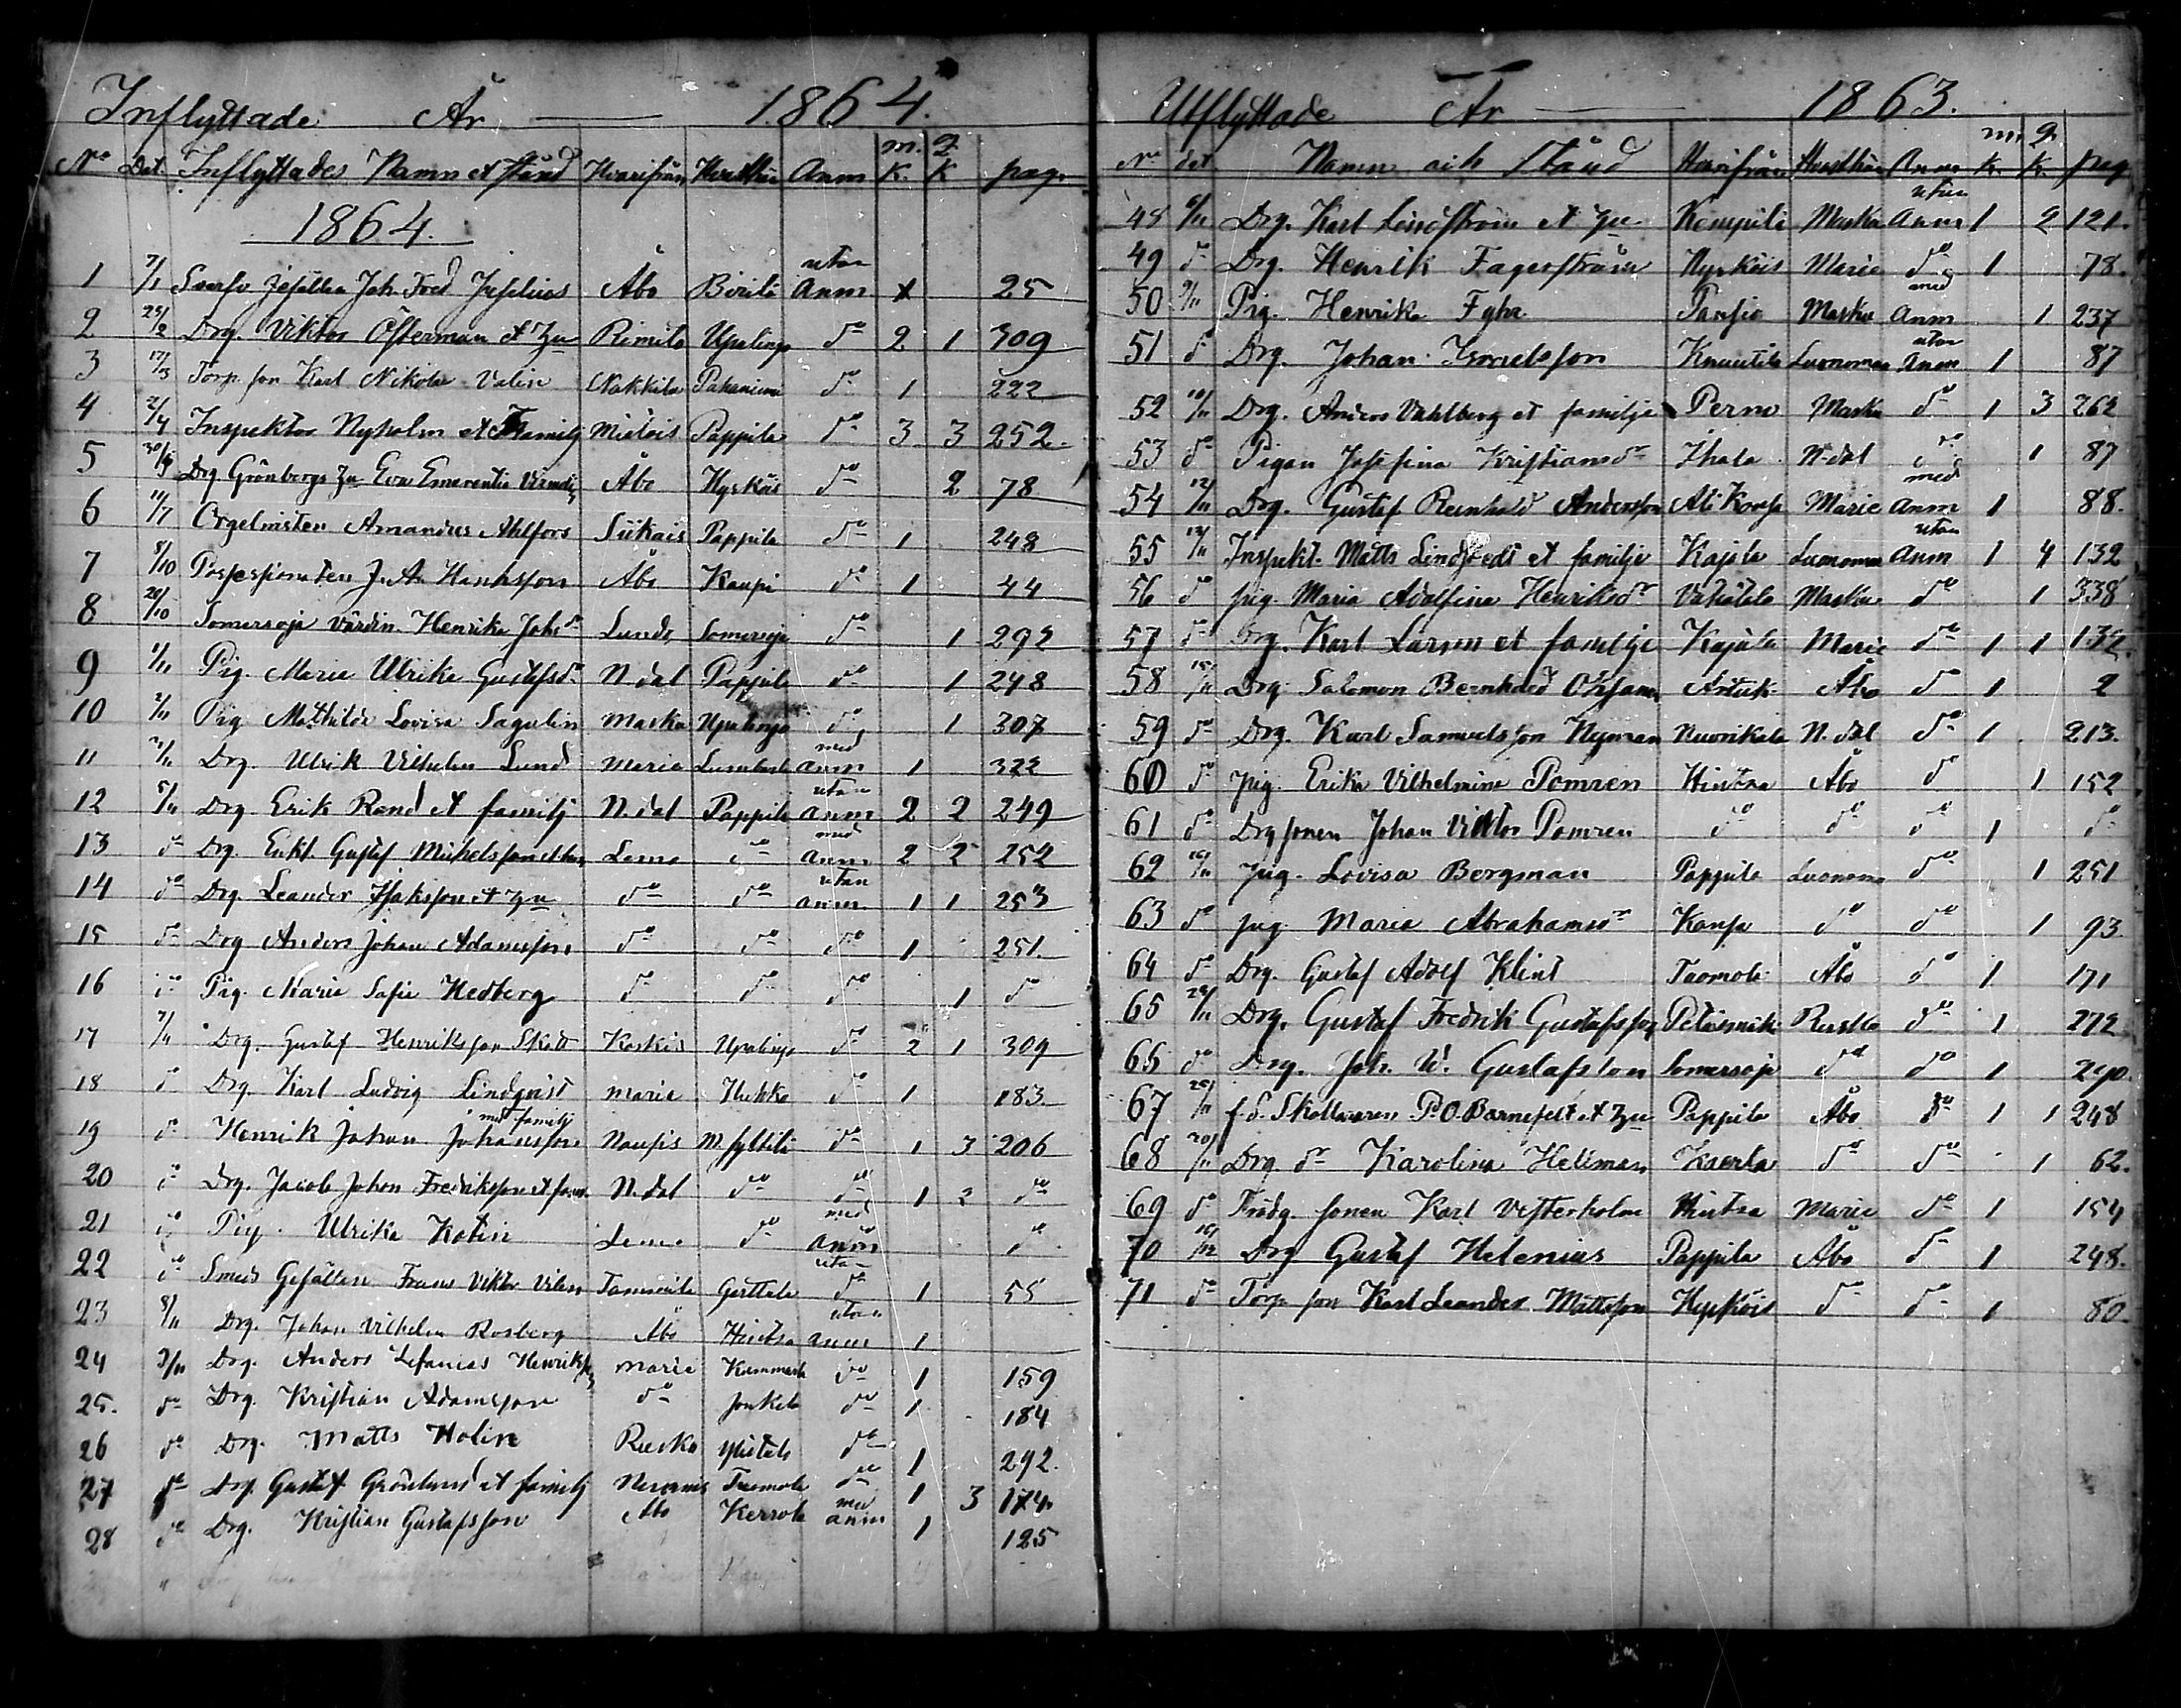 Inflyttade År 1864.
No Dat Inflyttades Namn et stånd Hvarifrån Hvarthän Anm m.K. q.K pag.
1864.
1 7/1 Joh. Fred Åbo utan Anm 1 25
2 2 Drg. Viktor Österman et hu Rimito do 2 1 309
3 17/3 Torp. son Karl Nikolai Valin Nakkila do 1 222
4 2/4 Inspektor Nyholm et Familj Mietois Pappila do 3 3 252.
5 Drg Grönbergs hu Eva Emerentia Åbo Hyrköis do 2 78
6 11/7 Orgelnisten Amandus Ahlfors Siikais Pappila do 1 248
7 8/10 Possessionaten J. A. Åbo Kaupi do 1 44
8 28/10 Somersoja värdin. Henrika Johsdr Somersoja do 1 292
9 1/11 Pig. Maria Ulrika Gustafsdr N. dal Pappila do 1 248
10 2/11 Pig Mathilda Lovisa Sagulin Masku do 1 307
11 2/11 Drg. Ulrik Vilhelm Lund Maria med anm 1 322
12 5/11 Drg Erik Rand et familj N. dal Pappila utan anm 2 2 249
13 do Drg. Gustaf Michelsson Lemo do med anm 2 2 252
14 do Drg. Leander Isaksson et hu do do utan anm 1 1 253
15 do Drg Anders Johan Adamsson do do do 1 251.
16 do Pig. Maria Sofia Hedberg do do do 1 do
17 7/11 Drg. Gustaf Henriksson Skött Koskis do 2 1 309
18 do Drg Karl Ludvig Lindqvist Maria Hukka do 1 183
19 do Henrik Johan Johansson med familj Nousis do 1 3 206
20 do Drg. Jacob Johan Fredriksson et fam. N. dal do do 1 2 do
21 do Pig. Ulrika Kotin Lemo do med anm do
22 do Smeds Gesällen Frans Viktor Gerttala utan do 1 55
23 8/11 Drg. Johan Vilhelm Rosberg Åbo Hintsa utan anm 1
24 9/11 Drg. Anders Henriksson Maria do 1 159
25. do Drg. Kristian Adamsson do Jonkela do 1 184
26 do Drg. Matts Holin Rusko do 1 292.
27 do Drg. Gustaf Grönlund et familj Tuomola do 1 3 174.
28 do Drg. Kristian Gustafsson Åbo Kerrola med anm 1 125
Utflyttade År 1863.
No dat Namn och Stånd Hvarifrån Hvarthän Anm m.K. q.K. pag
48 Drg. Karl Lindström et hu Masku utan Anm 1 2 121.
49 do Drg. Henrik Fagerström Hyrköis Marie do 1 78.
50 9/11 Pig. Henrika Fghr Pansio Masku med Anm 1 237
51 do Drg. Johan Ismelsson Knuutila Luonomaa utan Anm 1 87
52 10/11 Drg. Anders Vahlberg et familje Perno Masku do 1 3 262
53 do Pigan Josefina Kristiansdr Ihala N. dal do 1 87
54 12/11 Drg. Gustaf Reinhold Andersson Marie med Anm 1 88.
55 13/11 Inspekt. Matts Lindstedt et familje Kajala Luonomaa utan Anm 1 4 132
56 do pig. Maria Adolfina Henriksdr Masku do 1 338
57 do Drg. Karl Larson et familje Kajala Marie do 1 1 132.
58 15/11 Drg. Salomon Bernhard Åbo do 1 2
59 do Drg. Karl Samuelsson Nyman N. dal do 1 213.
60 do pig. Erika Vilhelmina Pomren Hintsa Åbo do 1 152
61 do Drg sonen Johan Viktor Pomren do do do 1 do
62 16/11 pig. Lovisa Bergman Pappila Luonoma do 1 251
63 do pig. Maria Abrahamsdr do do 1 93
64 do Drg. Gustaf Adolf Klint Tuomola Åbo do 1 171
65 11 Drg. Gustaf Fredrik Gustafsson Rusko do 1 272
66 do Drg. Joh. W. Gustafsson Somersoja do do 1 290.
67 11 f. d. P. O. Barnefelt et hu Pappila Åbo do 1 1 248
68 11 Drg. dr Karolina Hellman Kaerla do do 1 62.
69 do sonen Karl Vesterholm Hintsa Marie do 1 154
70 12 Drg. Gustaf Helenius Pappila Åbo do 1 248.
71 do Torp son Karl Leander Mattsson Hyrköis do do 1 80